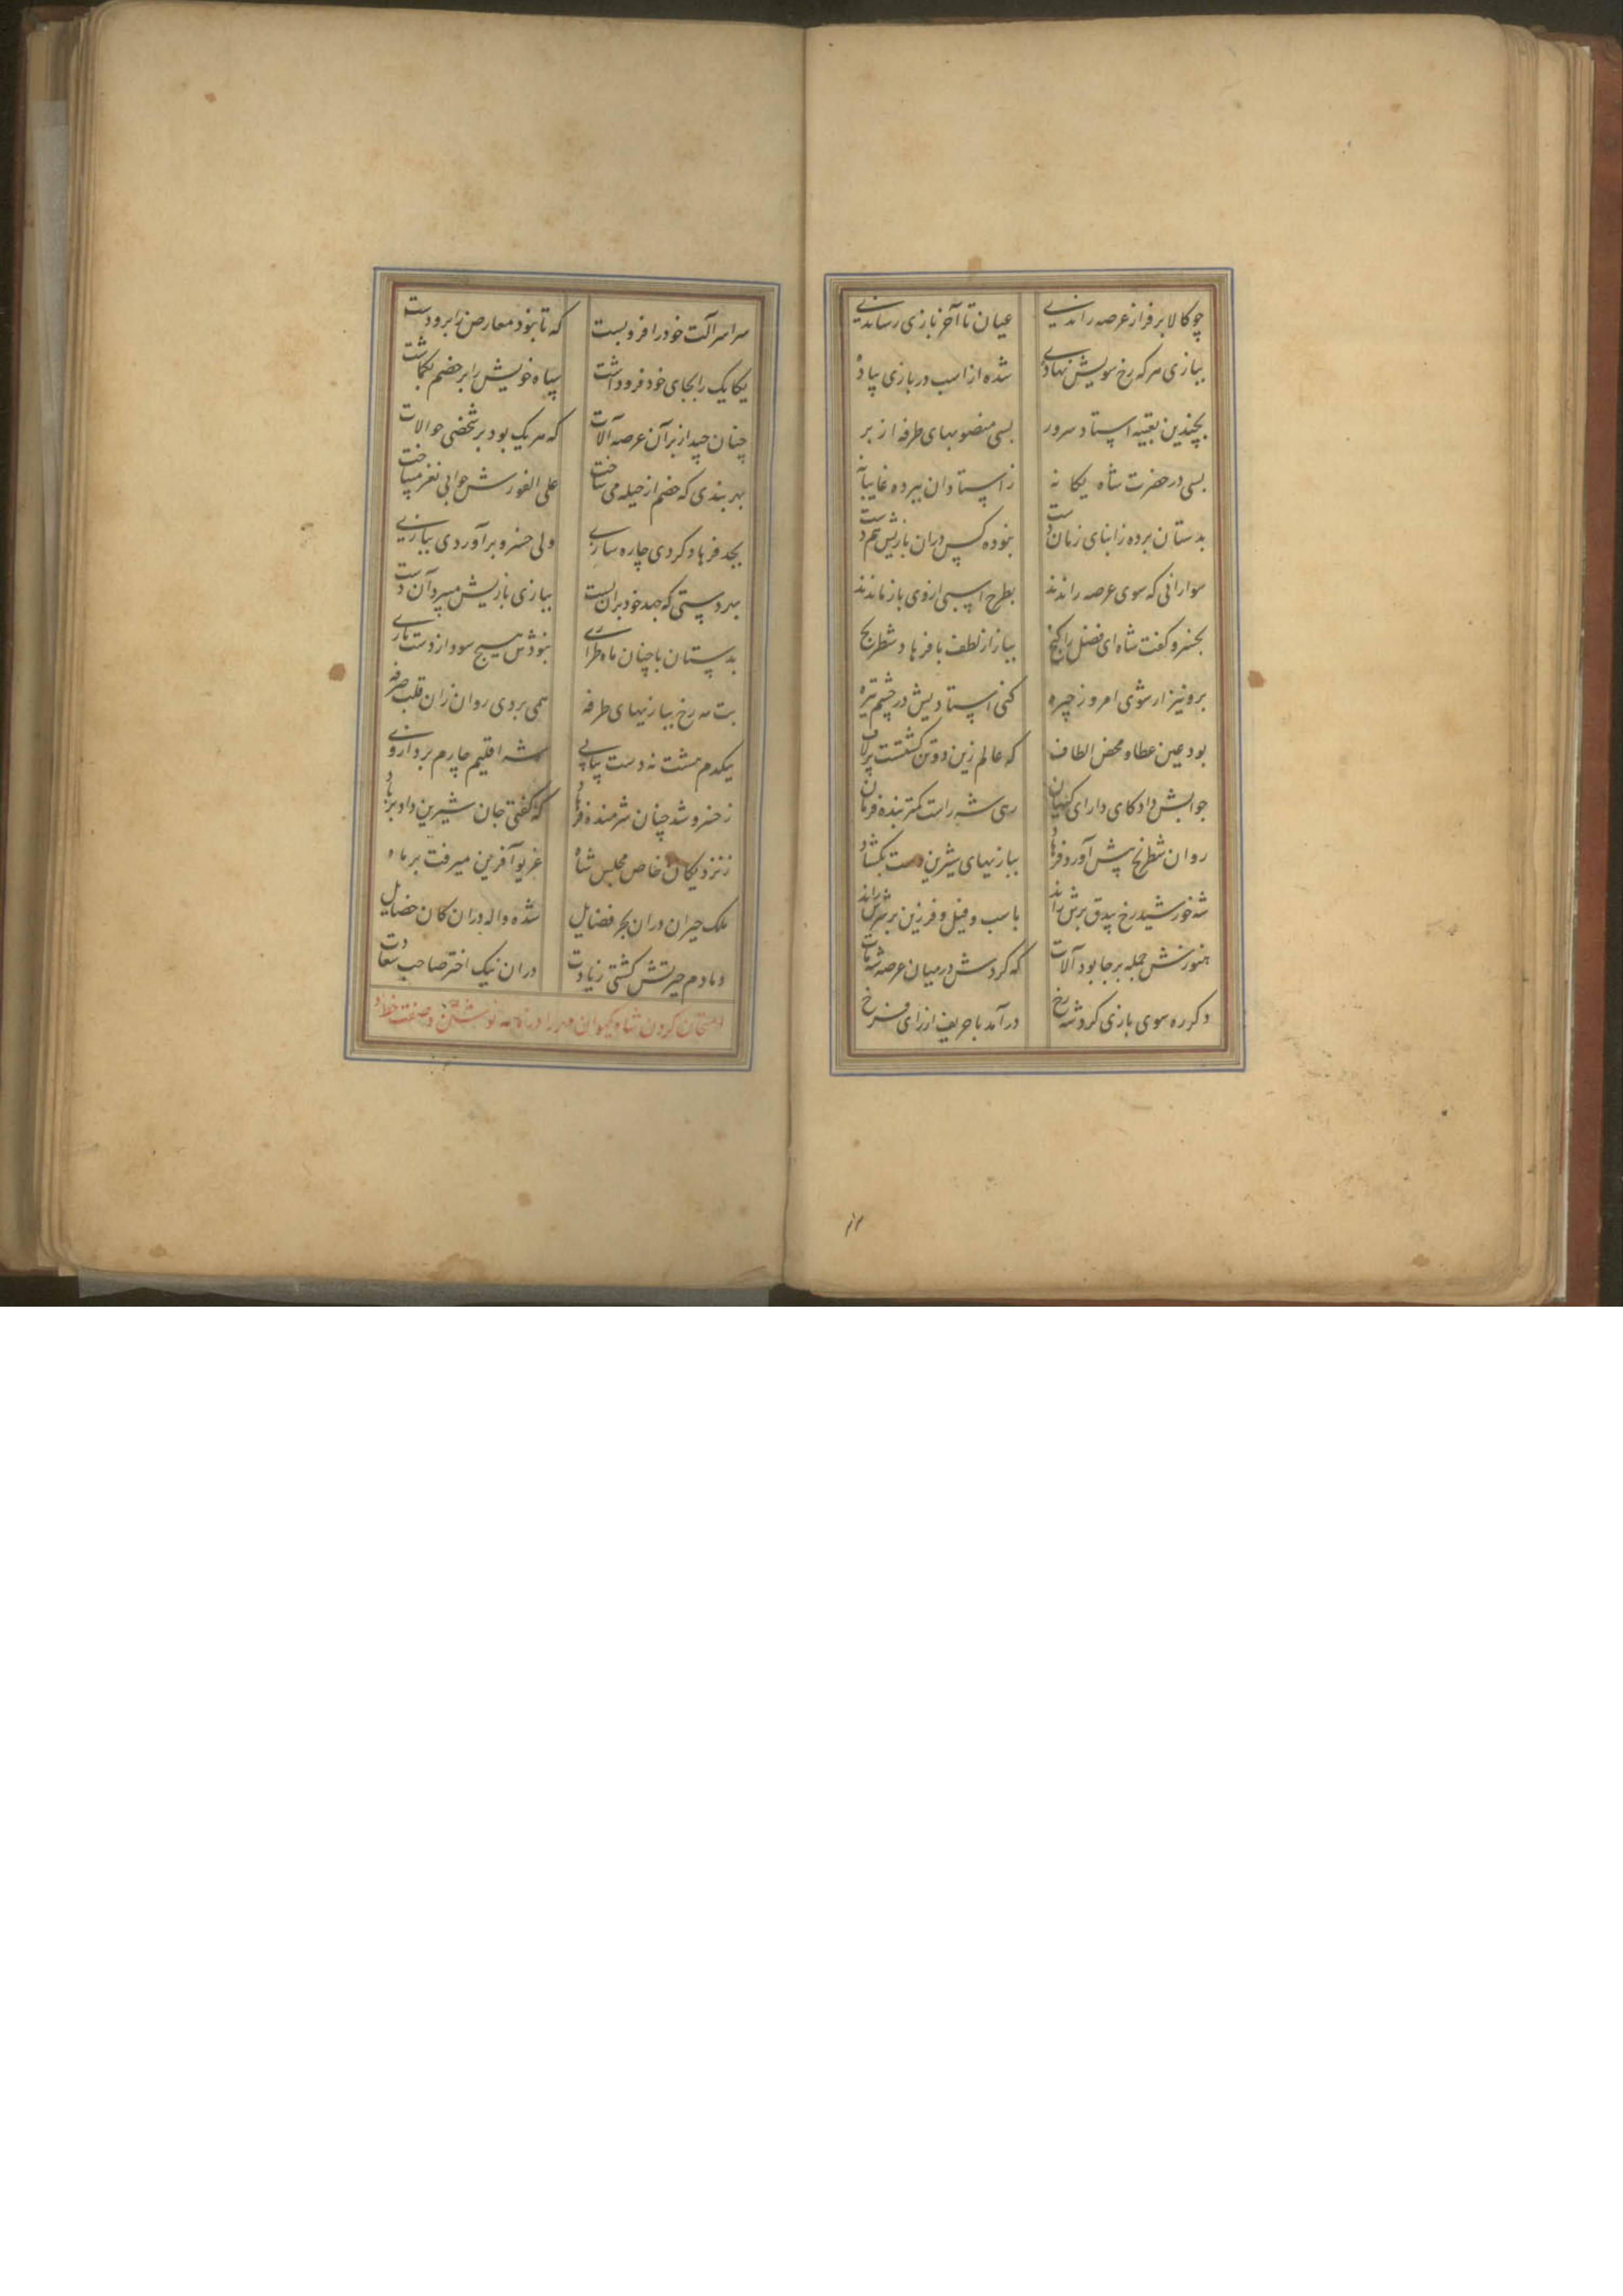 چو کالا بر فراز عرصه راندی عیان تا آخر بازی رساندی
ببازی هر که رخ سویش نهاده شده از اسب در بازی پیاده
بچندین تعبیه استاد سرور بسی منصوبهای طرفه از بر
بسی در حضرت شاه یگانه ز استادان ببرده غایبانه
بدستان برده ز ابنای زمان دست نبوده کس دران بازیش هم دست
سوارانی که سوی عرصه راندند بطرح اسبی ازوی باز ماندند
بخسرو گفت شاه ای فضل را گنج بباز از لطف با فرهاد شطرنج
برو نیز ار شوی امروز چیره کنی استادیش در چشم تیره
بود عین عطا و محض الطاف که عالم زین دو تن گشتست پرلاف
جوابش داد کای دارای کیهان رهی شه راست کمتر بنده فرمان
روان شطرنج پیش آورد فرهاد ببازیهای شیرین دست بگشاد
شه خورشید رخ بیدق برش راند باسب و فیل و فرزین بر سرش راند
هنوزش جمله بر جا بود آلات که کردش در میان عرصه شه مات
دگر ره سوی بازی کرد شه رخ درآمد با حریف از رای فرخ
سراسر آلت خود را فرو بست که تا نبود معارض را برو دست
یکایک را بجای خود فرو داشت سپاه خویش را بر خصم بگماشت
چنان چید از بر آن عرصه آلات که هر یک بود بر شخصی حوالات
بهر بندی که خصم از حیله می ساخت علی الفورش جوابی نغز میساخت
بجد فرهاد کردی چاره سازی ولی خسرو برآوردی ببازی
بهر دستی که جهد خود بران بست ببازی بازیش میبرد آن دست
بدستان با چنان ماه طرازی نبودش هیچ سود از دست بازی
بت مه رخ ببازیهای طرفه همی بردی روان زان قلب صرفه
بیکدم هشت نه دست پیاپی شه اقلیم چارم برد از وی
ز خسرو شد چنان شرمنده فرهاد که گفتی جان شیرین داد بر باد
ز نزدیکان خاص مجلس شاه غریو آفرین میرفت بر ماه
ملک حیران دران بحر فضایل شده واله دران کان خصایل
دمادم حیرتش گشتی زیادت دران نیک اختر صاحب سعادت
امتحان کردن شاه کیوان مهر را در نامه نوشتن و صفت خط او